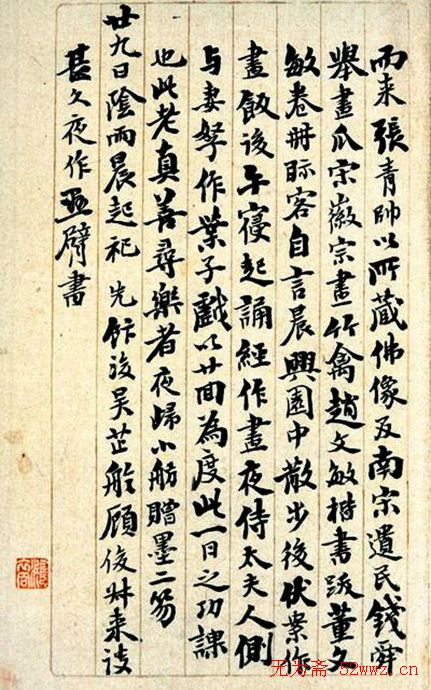 而来張青帥以所藏佛像及南宋遺民錢舜
舉畫瓜宋徽宗畫竹禽趙文敏楷書跋董文
敏卷冊眎客自言晨興園中散步後伏案作
畫飯後午寢起誦經作畫夜侍太夫人側
与妻孥作葉子戲以廿回為度此一日之功課
也此老真善尋樂者夜歸小舫贈墨二笏
廿九日陰雨晨起祀先饌後吴芷舲顧俊艸来談
甚久夜作懸臂書
无为斋 52wwz.cn